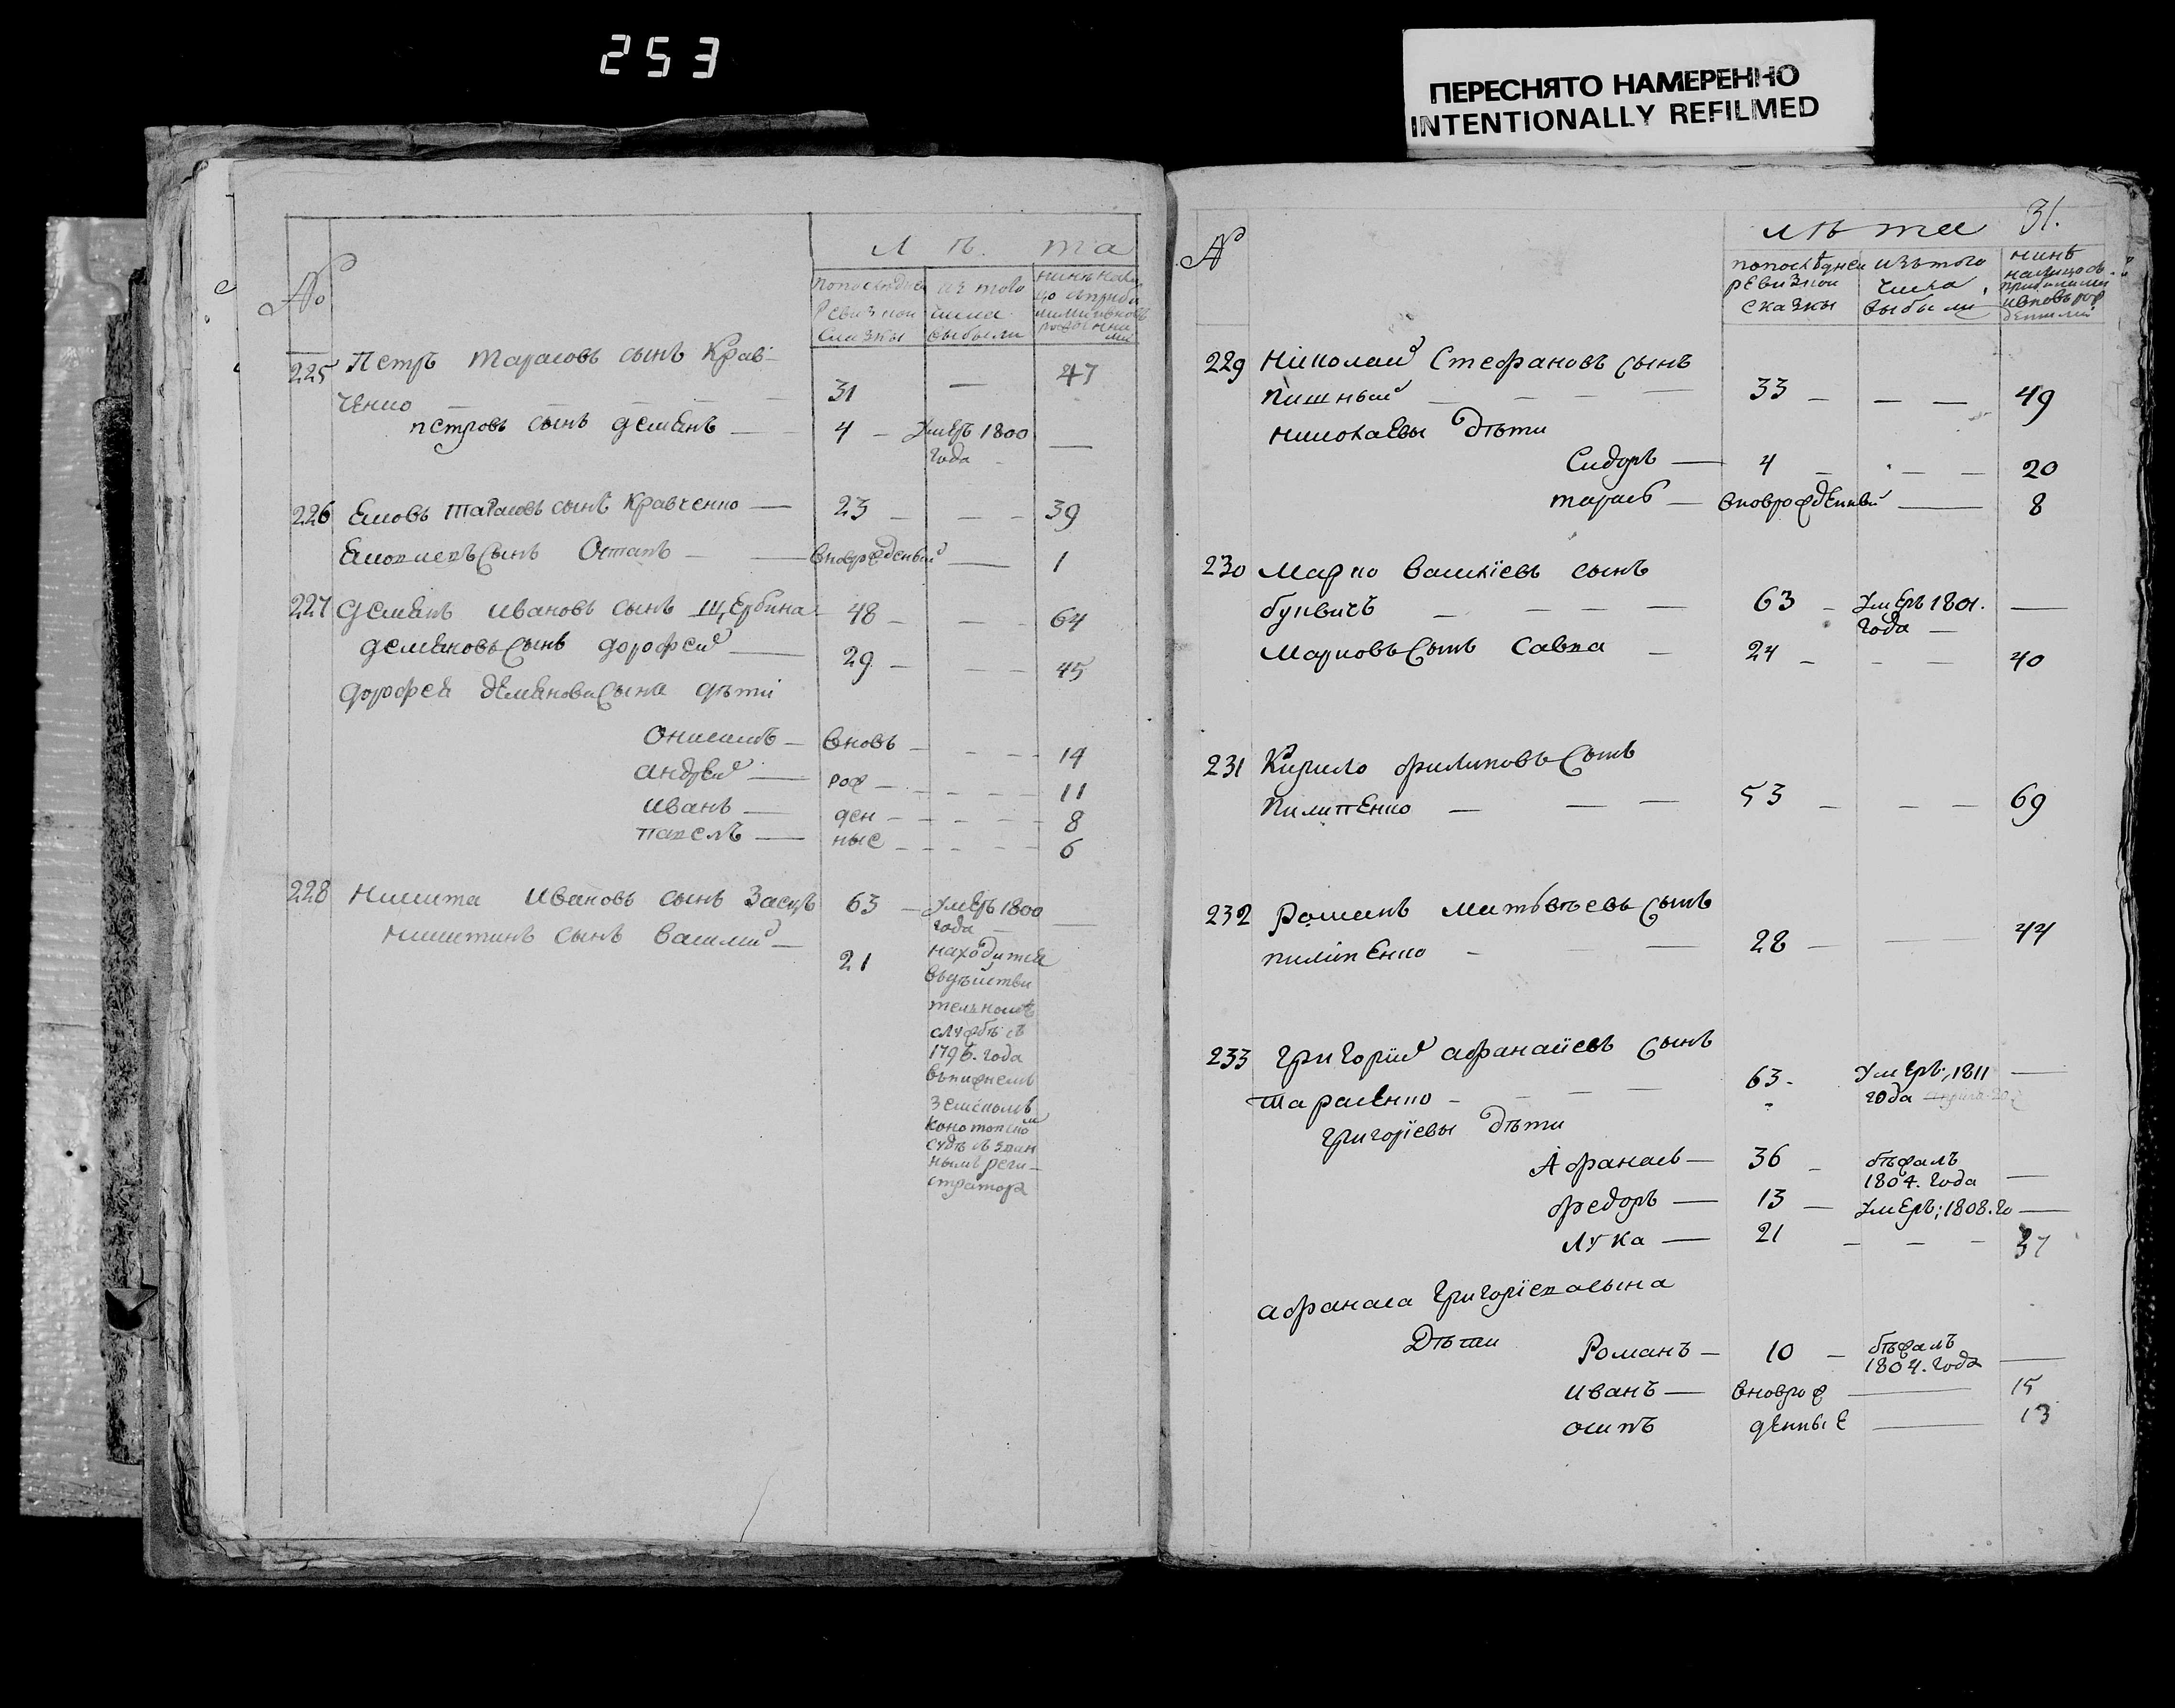 253
ПЕРЕСНЯТО НАМЕРЕННО
INTENTIONALLY REFILMED
№
Л ѣ та
попоследнеи ревизнои сказки
из того числа выбыли
225 Петръ тарасовъ сынъ Крав-
ченко — 31 — 47
петровъ сынъ демянъ — 4 — умеръ 1800
года —
226 Яковъ тарасовъ сынъ кравченко — 23 — — 39
Яковлевъ сынъ Остапъ — вновьрожденный — 1
227 демянъ ивановъ сынъ щербина 48 — — 64
демяновъ сынъ дорофей — 29 — — 45
дорофея демянова сына дѣти
Онисимъ — вновь — 14
андрей — рож — 11
иванъ — ден — 8
павелъ — ные — 6
228 никита ивановъ сынъ Заецъ 63 — умеръ 1800 —
года —
никитинъ сынъ василий — 21
находится
въдѣйстви
телномъ
службѣ съ
1796. года
внижнемъ
земскомъ
конотопском
судѣ
нымъ реги-
стратора
31.
№
лѣта
попоследнеи
ревизнои
сказки
изътого
числа
выбыли
нинѣ
налицо съ
прибылими
ивновь рож
денними
229 николай Стефановъ сынъ
пишный — 33 — — — 49
николаевы дѣти
Сидоръ — 4 — — — 20
тарасъ — вноврожденный — 8
230 марко васильевъ сынъ
буквичъ — 63 — умеръ 1801. —
года —
марковъ сынъ савка — 24 — — — 40
231 кирило филиповъ сынъ
пилипенко — 53 — — — 69
232 романъ матвѣевъ сынъ
пилипенко — 28 — — 44
233 григорий афанасиевъ сынъ
тарасенко — 63 - умеръ, 1811 —
года
григориевы дѣти
Афанасъ — 36 — бѣжалъ
1804. года —
федоръ — 13 — умеръ; 1808. го —
лука — 21 — — — 37
афанаса григориева сына
дѣти Романъ — 10 — бѣжалъ
1804. года —
иванъ — вноврож — 15
осипъ денные — 13